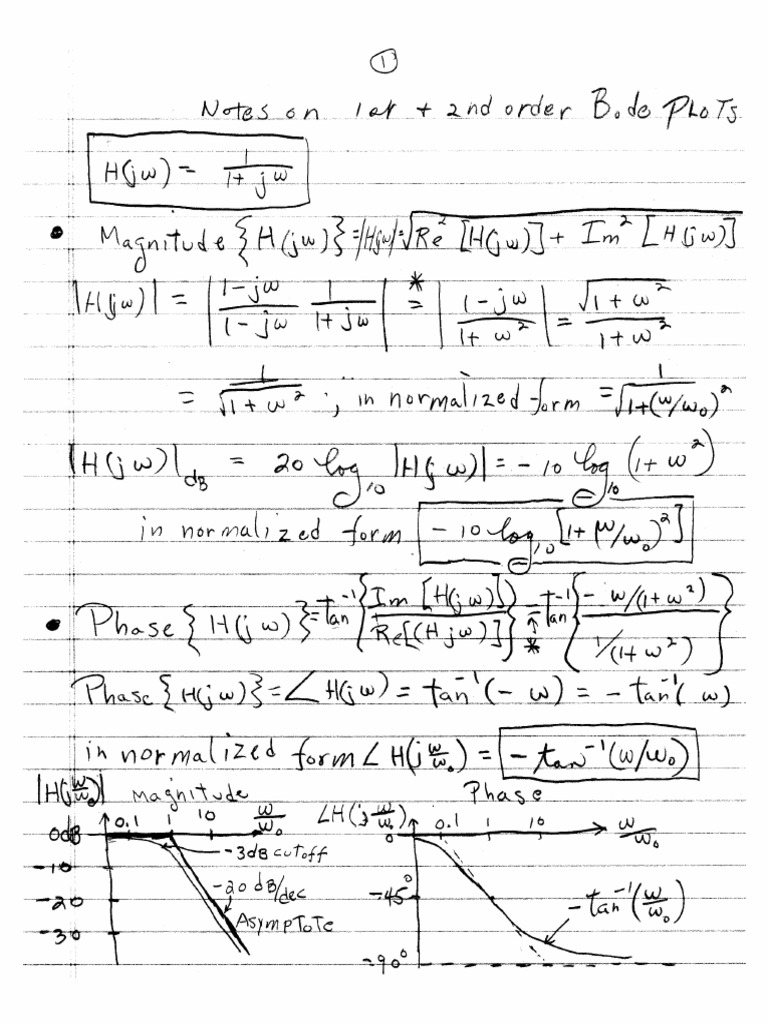 ①
Notes on 1st + 2nd order Bode PLoTs
H(jω) = 1/(1+jω)
• Magnitude{H(jω)} = |H(jω)| = √(Re²[H(jω)] + Im²[H(jω)])
|H(jω)| = |(1-jω)/(1-jω) 1/(1+jω)| *= |(1-jω)/(1+ω²)| = √(1+ω²)/(1+ω²)
= 1/√(1+ω²) ; in normalized form = 1/√(1+(ω/ω₀)²)
|H(jω)|dB = 20 log₁₀ |H(jω)| = -10 log₁₀ (1+ω²)
in normalized form -10 log₁₀ [1+(ω/ω₀)²]
• Phase{H(jω)} = tan⁻¹{Im[H(jω)]/Re[(Hjω)]} = tan⁻¹{(-ω/(1+ω²))/(1/(1+ω²))}
↑
*
Phase{H(jω)} = ∠H(jω) = tan⁻¹(-ω) = -tan⁻¹(ω)
in normalized form ∠H(j ω/ω₀) = -tan⁻¹(ω/ω₀)
|H(j ω/ω₀)| Magnitude Phase
0.1 1 10 ω/ω₀ ∠H(j ω/ω₀) 0.1 1 10 ω/ω₀
0dB 0
-3dB cutoff
-10
-20 dB/dec
-20 -45° -tan⁻¹(ω/ω₀)
AsympToTe
-30
-90°